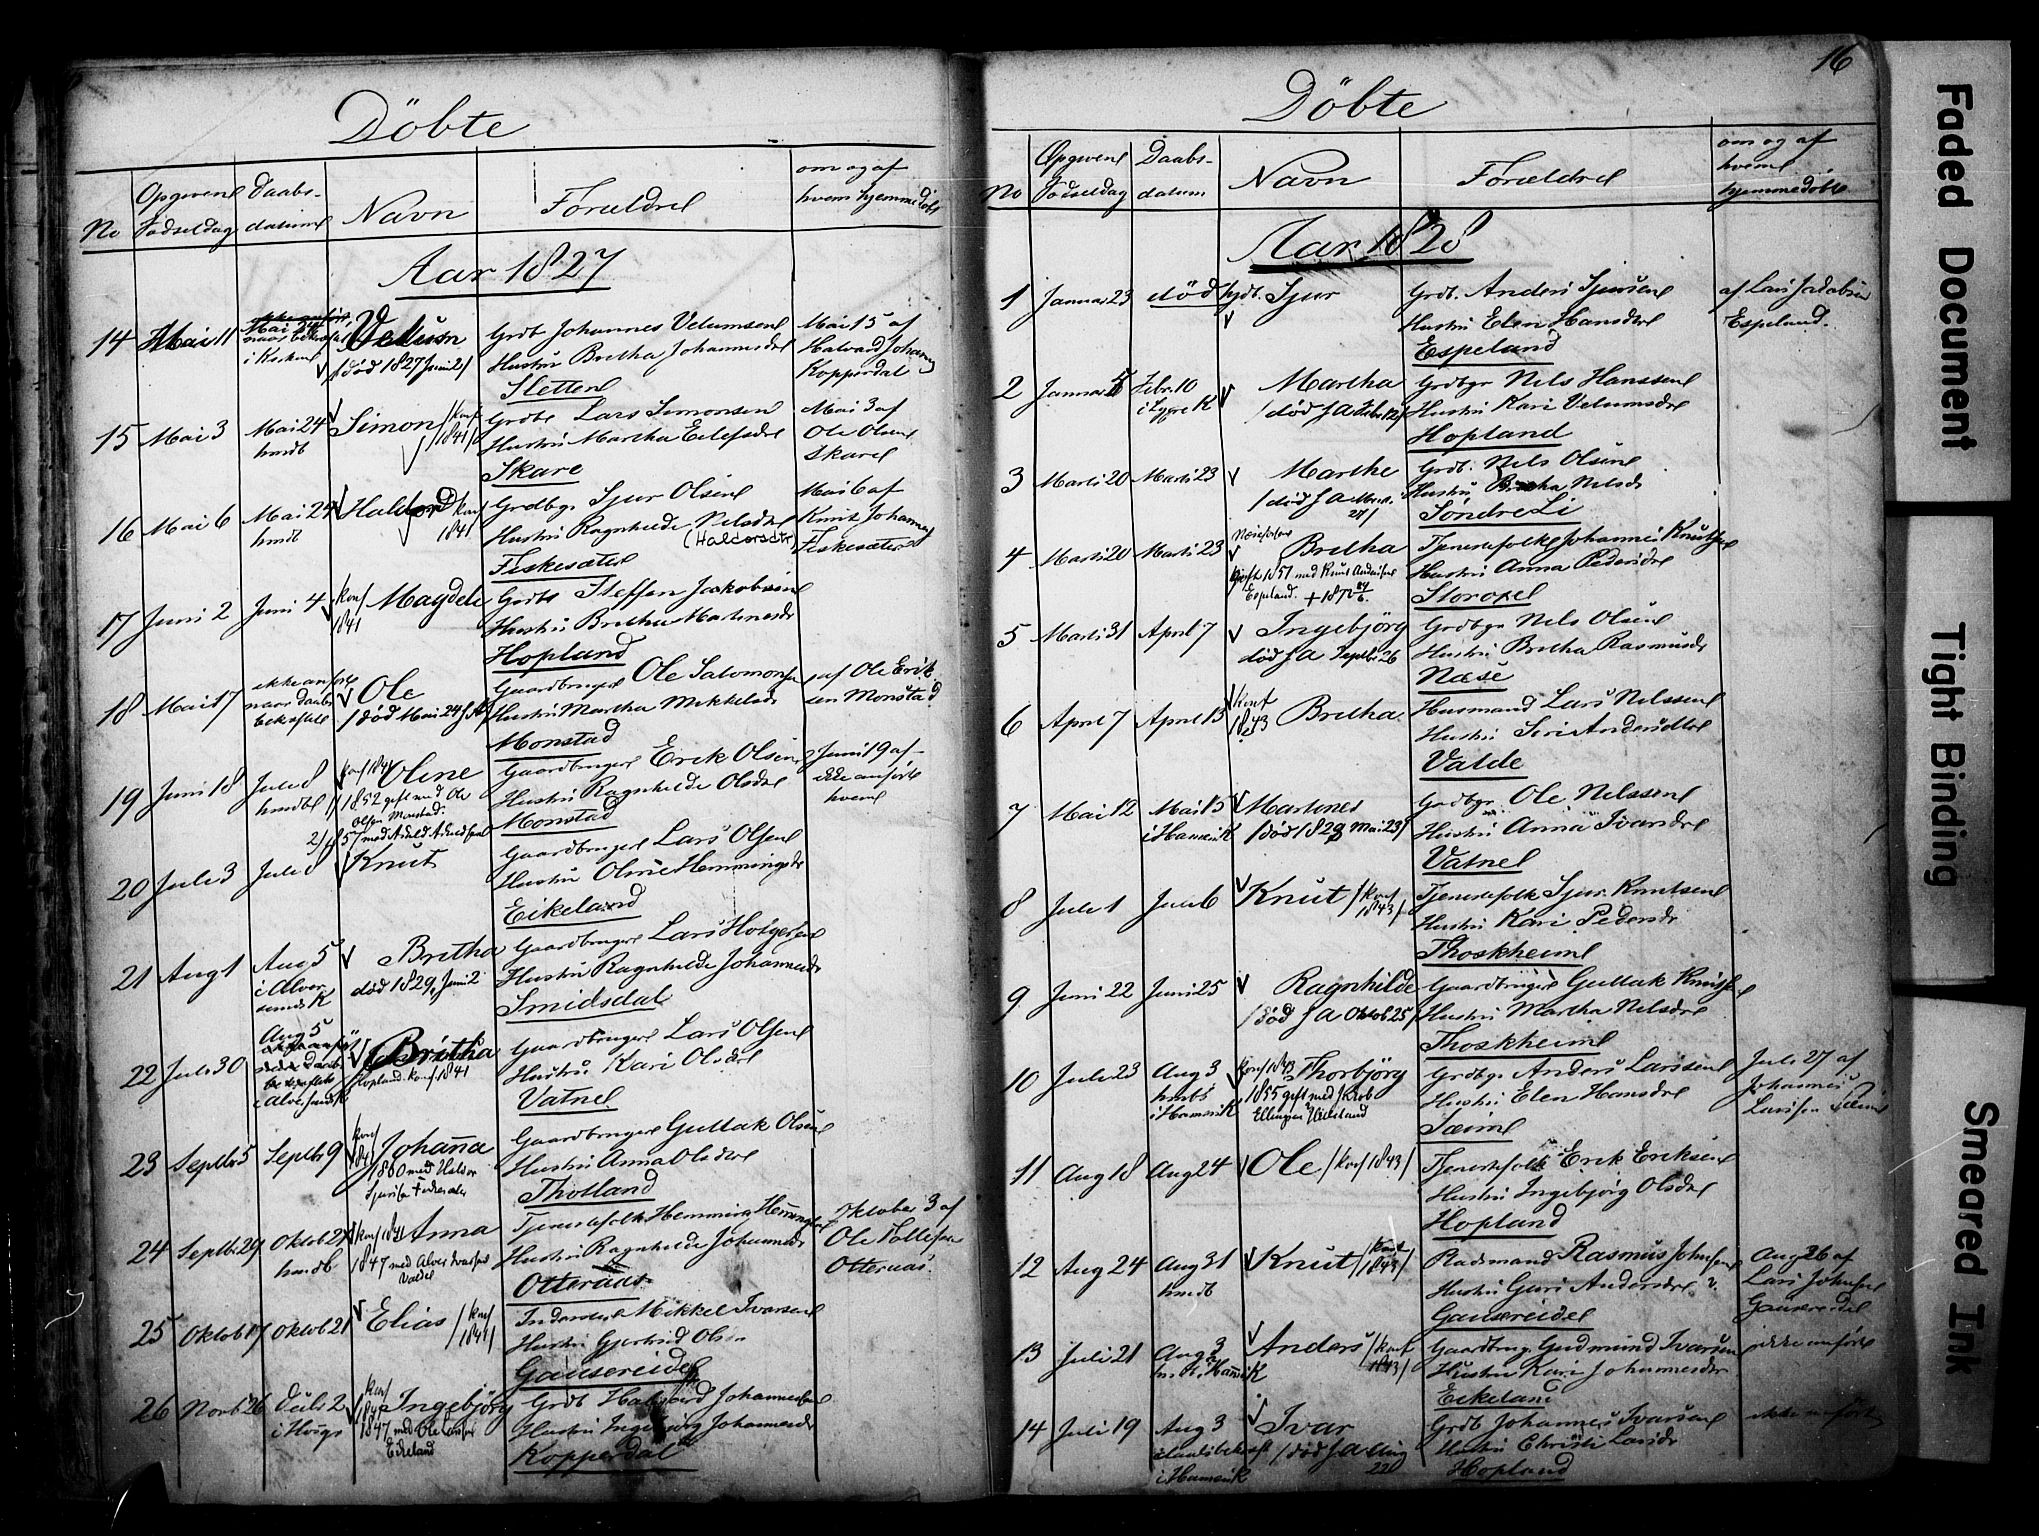 Döbte
No
Opgivene
Fødseldag
Daabs-
datum
Navn
Forældre
om og af
hvem hjemmedöbt
Aar 1827
14 Mai 11
Mai 24
i Kirken
Velum
/död 1827 Juni 2/
Grdb Johannes Velumsen
Hustru Britha Johannesdr
Sletten
Mai 15 af
Halvard Johannes
Kopperdal
15 Mai 3
Mai 24
hmdb
Simon /konf
1841/
Grdb Lars Simonsen
Hustru Martha
Skare
Mai 3 af
Ole Olsen
Skare
16 Mai 6
Mai 24
hmdb
Haldor konf
1841
Grdbgr Sjur Olsen
Hustru Ragnhilde Nelsdr
(Haldorsdtr)
Fiskesæter
Mai 6 af
Knut Johannes
Fiskesæter
17 Juni 2
Juni 4
konf
1841
Magdele
Grdb Steffen Jakobsen
Hustru Britha Martinusdr
Hopland
18 Mai 17
ikke anfört
naar daab
bekræftet
Ole
/död Mai 24
Gaardbruger Ole Salomonsen
Hustru Martha Mikkelsdr
Monstad
af Ole Erik
sen Monstad
19 Juni 18
Juli 8
hmdb
konf 1841
Oline
/1852 gift med Ole
Olsen Monstad.
Gaardbruger Erik Olsen
Hustru Ragnhilde Olsdr
Monstad
Juni 19 af
ikke anfört
hvem
20 Juli 3
Juli 8
Knut
Gaardbruger Lars Olsen
Hustru Oline Hemmingsdr
Eikeland
21 Aug 1
Aug 5
i Alver
sunds K
Britha
död 1829, Juni 2
Gaardbruger Lars Holgersen
Hustru Ragnhilde Johannesdr
Smidsdal
22 Juli 30
Aug 5
bekræftet
i Alversunds K
Britha
Hopland konf 1841
Gaardbruger Lars Olsen
Hustru Kari Olsdr
Vatne
23 Septbr 5
Septbr 9
konf
Johanna
1860 med Haldor
Gaardbruger Guttak Olsen
Hustru Anna Olsdr
Tholland
24 Septbr 29
Oktob 21
hmdb
konf 1841 Anna
1847 med
Tjenestefolk Hemming
Hustru Ragnhilde Johannesdr
Otteraas
Oktober 3 af
Ole Tollefsen
Otteraas
25 Oktob 17
Oktob 21
Elias /konf
1841/
Inderst Mikkel Ivarsen
Hustru Gjertrud Ols
Gausereidet
26 Novb 26
Decb 2
konf
Ingebjörg
1847 med Ole Larsen
Eikeland
Grdb Halvard Johannesen
Hustru Ingebjörg Johannesdr
Kopperdal
16
Döbte
No
Opgivene
Fødseldag
Daabs-
datum
Navn
Forældre
om og af
hvem
hjemmedöbte
Aar 1828
1 Januar 23
död hjdb.
Sjur
Grdb. Anders Sjursen
Hustru Elen Hansdr
Espeland
af Lars Jakobsen
Espeland.
2 Januar
Febr. 10
i Lygre K
Martha
/död S A Febr 12/
Grdbgr Nils Hanssen
Hustru Kari Velumsdr
Hopland
3 Marts 20
Marts 23
Marthe
/död S A Marts
27/
Grdb. Nels Olsen
Hustru Britha Nelsdr
Söndre Li
4 Marts 20
Marts 23
Britha
Gift 1851 med Knut Andersen
Espeland.
Tjenestefolk Johannes Knutsen
Hustru Anna Pedersdr
Storoxel
5 Marts 31
April 7
Ingebjörg
död S A Septbr 26
Grdbgr Nels Olsen
Hustru Britha Rasmusdr
Næse
6 April 7
April 13
konf
1843
Britha.
Husmand Lars Nelssen
Hustru Siri Andersdtr
Valde
7 Mai 12
Mai 15
i Hamre K
Martines
/död 1828 Mai 23/
Grdbgr Ole Nelssen
Hustru Anna Ivarsdr
Vatne
8 Juli 1
Juli 6
Knut /konf
1843/
Tjenestefolk Sjur Knutsen
Hustru Kari Pedersdr
Thoskheim
9 Juni 22
Juni 25
Ragnhilde
/död S A Oktob 25/
Gaardbruger Guttak Knutsen
Hustru Martha Nelsdr
Thoskheim
10 Juli 23
Aug 3
hmdb
i Hamre K
konf 1843
Thorbjörg
1855 gift med Jakob
Ellingsen
Grdbgr Anders Larssen
Hustru Elen Hansdr
Sæim
Juli 27 af
Johannes
Larssen Sæim
11 Aug 18
Aug 24
Ole /konf 1843/
Tjenestefolk Erik Eriksen
Hustru Ingebjörg Olsdr
Hopland
12 Aug 24
Aug 31
hmdb
Knut /konf
1843/
Radsmand Rasmus Johnsen
Hustru Guri Andersdr ?
Gausereidet
Aug 26 af
Lars Johnsen
Gausereidet
13 Juli 21
Aug 3
Anders /konf
1843/
Gaardbrug. Gudmund Ivarsen
Hustru Kari Johannesdr
Eikeland
ikke anfört
14 Juli 19
Aug 3
i Hamre K
Ivar
/död S A Aug
22/
Grdb Johannes Ivarsen
Hustru Christi Larsdr
Hopland
ikke anfört
Faded Document
Tight Binding
Smeared Ink